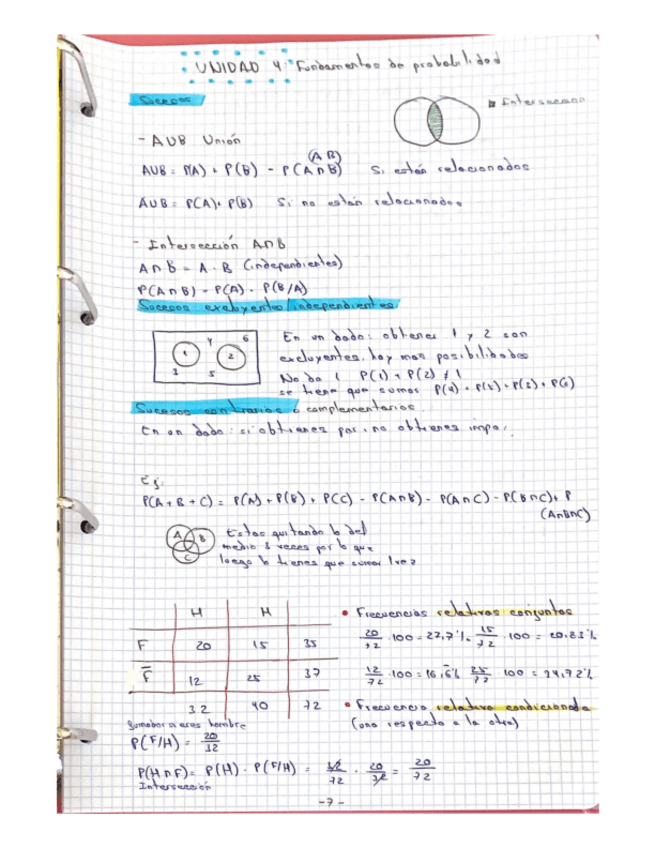 UNIDAD 4: Fundamentos de probabilidad
Sucesos
Intersección
- AUB Unión
(AB)
AUB = P(A) + P(B) - P(A∩B) Si están relacionados
AUB = P(A) + P(B) Si no están relacionados
- Intersección A∩B
A∩B = A · B (independientes)
P(A∩B) = P(A) · P(B/A)
Sucesos excluyentes/independientes
1 2 3 4 5 6
En un dado: obtener 1 y 2 son
excluyentes, hay mas posibilidades
No da 1 P(1) + P(2) ≠ 1
se tiene que sumar P(4) + P(5) + P(3) + P(6)
Sucesos contrarios o complementarios
En un dado: si obtienes par, no obtienes impar
Ej:
P(A + B + C) = P(A) + P(B) + P(C) - P(A∩B) - P(A∩C) - P(B∩C) + P
(A∩B∩C)
A B C
Estas quitando lo del
medio 3 veces por lo que
luego lo tienes que sumar 1 vez
• Frecuencias relativas conjuntas
H M
F 20 15 35
F̅ 12 25 37
32 40 72
20/72 · 100 = 27,7% 15/72 · 100 = 20.83%
12/72 · 100 = 16,6% 25/72 · 100 = 34,72%
• Frecuencia relativa condicionada
(una respecto a la otra)
Fumador si eres hombre
P(F/H) = 20/32
P(H∩F) = P(H) · P(F/H) = 32/72 · 20/32 = 20/72
Intersección
-7-